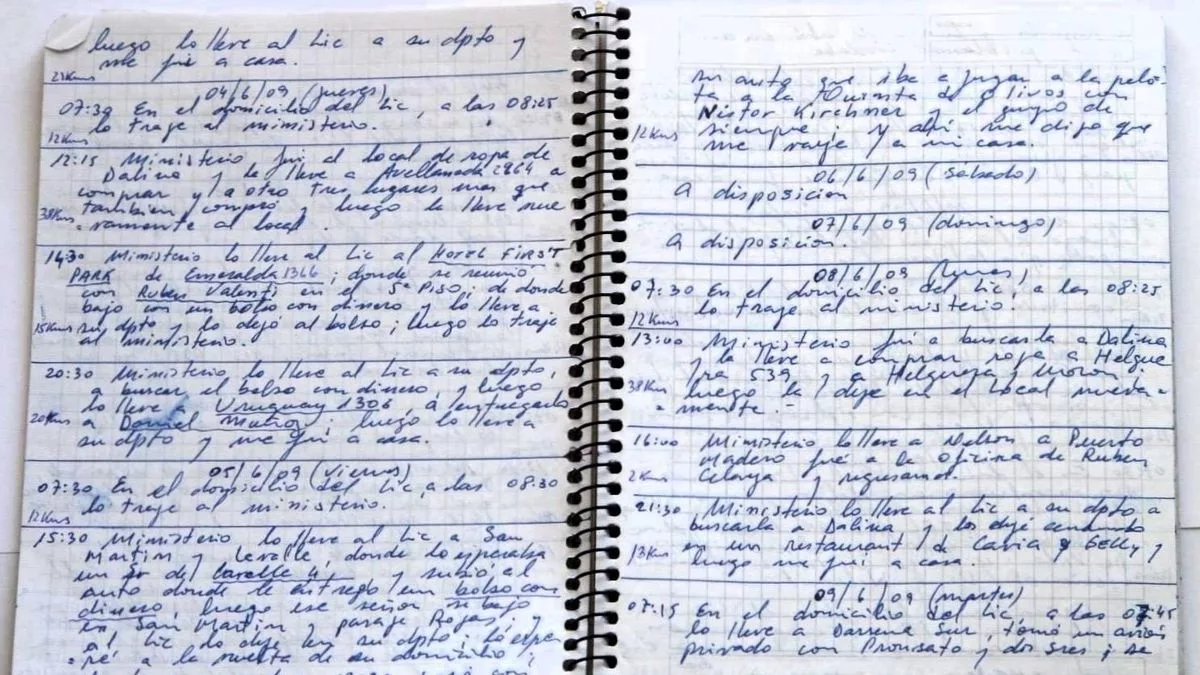 luego lo lleve al Lic a su dpto y
me fui a casa.
23Kms
04/6/09 (jueves)
07:30 En el domicilio del Lic, a las 08:25
lo traje al ministerio.
12Kms
12:15 Ministerio fui al local de ropa de
Dalina y la lleve a Avellaneda 2964 a
comprar y a otro tres lugares mas que
tambien compró y luego la lleve nue
38Kms vamente al local.
14:30 Ministerio lo lleve al Lic al HOTEL FIRST
PARK de Esmeralda 1366; donde se reunió
con Ruben Valenti en el 5º PISO; de donde
bajo con un bolso con dinero y lo lleve a
15Kms su dpto y lo dejó al bolso; luego lo traje
al ministerio.
20:30 Ministerio lo lleve al Lic a su dpto,
a buscar el bolso con dinero y luego
lo lleve a Uruguay 1306, a entregarlo
20Kms a Daniel Muñoz; luego lo lleve a
su dpto y me fui a casa.
05/6/09 (viernes)
07:30 En el domicilio del Lic, a las 08:30
lo traje al ministerio.
12Kms
15:30 Ministerio lo lleve al Lic a San
Martin y Lavalle, donde lo esperaba
un Sr de Lavalle 4 y subió al
auto donde le entregó un bolso con
dinero, luego ese señor se bajo
en San Martin y pasaje Rojas, y
al Lic lo deje en su dpto; lo espe
ré a la vuelta de su domicilio;
su auto que iba a jugar a la pelo
ta a la Quinta de Olivos con
Nestor Kirchner y el grupo de
12Kms siempre; y ahi me dijo que
me vaya a mi casa.
06/6/09 (sabado)
A disposicion
07/6/09 (domingo)
A disposicion.
08/6/09 (lunes)
07:30 En el domicilio del Lic, a las 08:25
lo traje al ministerio.
12Kms
13:00 Ministerio fui a buscarla a Dalina
y la lleve a comprar ropa a Helgue
ra 539 y a Helguera y Moron.
38Km luego la deje en el Local nueva-
mente.-
16:00 Ministerio lo lleve a Nelson a Puerto
Madero fué a la oficina de Ruben
2Kms y regresamos.
21:30 Ministerio lo lleve al Lic a su dpto a
buscarla a Dalina y los dejé cenando
13Kms en un restaurant de Cavia y Gelly y
luego me fui a casa.
09/6/09 (martes)
07:15 En el domicilio del Lic, a las 07:45
lo lleve a Darsena Sur, tomó un avión
privado con y dos sres; se